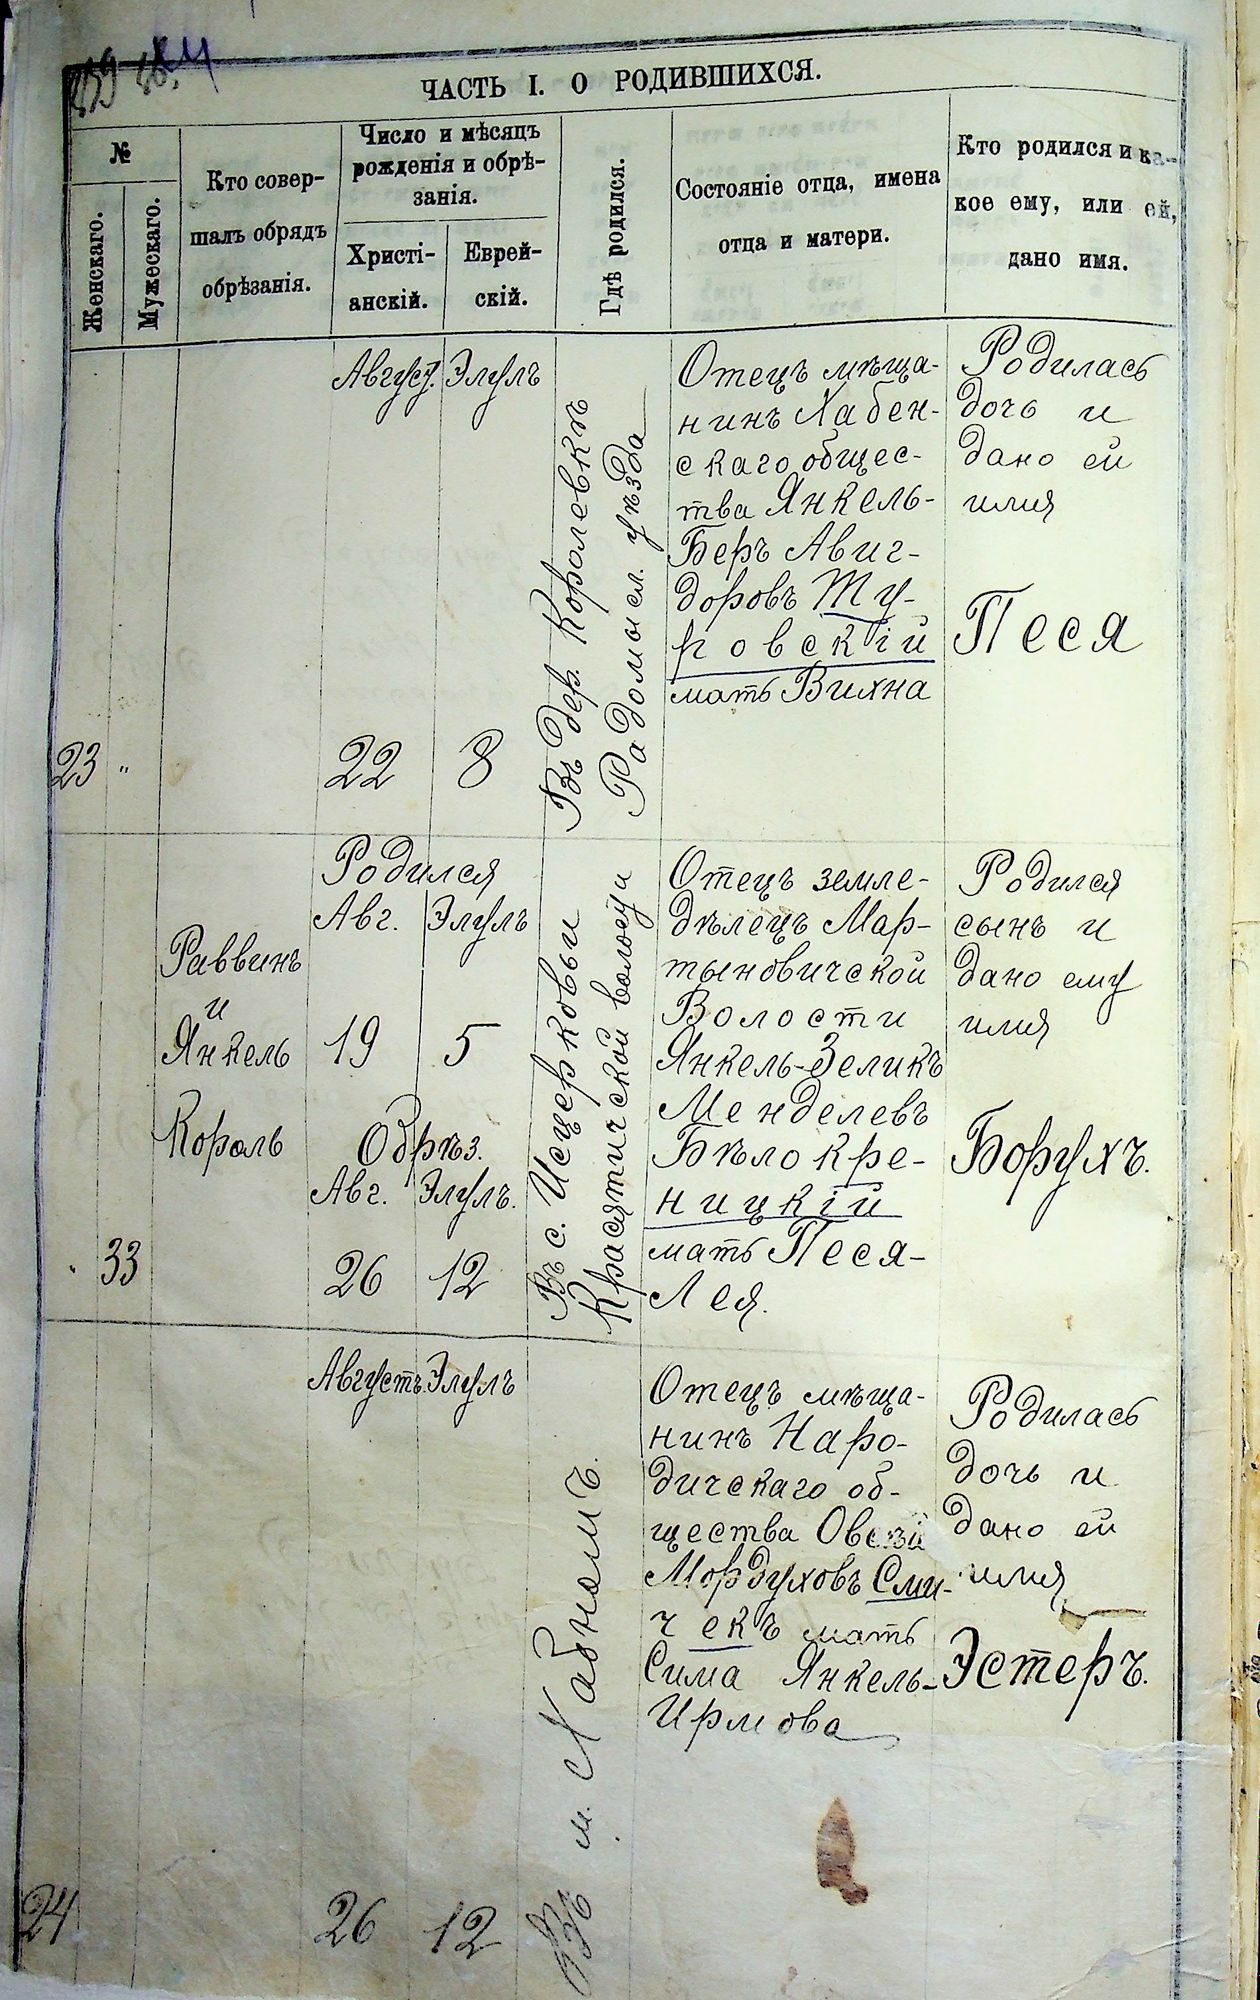 ЧАСТЬ I. О РОДИВШИХСЯ.
№
Женскаго.
Мужескаго.
Кто совер-
шалъ обрядъ
обрѣзанія.
Число и мѣсяцъ
рожденія и обрѣ-
занія.
Христі-
анскій.
Еврей-
скій.
Гдѣ родился.
Состояніе отца, имена
отца и матери.
Кто родился и ка-
кое ему, или ей,
дано имя.
23
"
Август.
Элулъ
22
8
Въ дер. Королевкѣ
Радомысл. уѣзда
Отецъ мѣща-
нинъ Хабен-
скаго общес-
тва Янкель-
Беръ Авиг-
доровъ Ту-
ровскій
мать Вихна
Родилась
дочь и
дано ей
имя
Песя
33
Раввинъ
и
Янкель
Король
Родился
Авг.
Элулъ
19
5
Обрѣз.
Авг.
Элулъ.
26
12
Въ с.
Красятической волости
Отецъ земле-
дѣлецъ Мар-
тыновичской
Волости
Янкель-Зеликъ
Менделевъ
Бѣлокре-
ницкій
мать Песя-
Лея.
Родился
сынъ и
дано ему
имя
Борухъ.
24
Августъ
Элулъ
26
12
Въ м. Хабномъ.
Отецъ мѣща-
нинъ Наро-
дичскаго об-
щества Овсѣй
Мордуховъ Сми-
чекъ мать
Сима Янкель-
Ирмова
Родилась
дочь и
дано ей
имя
Эстеръ.